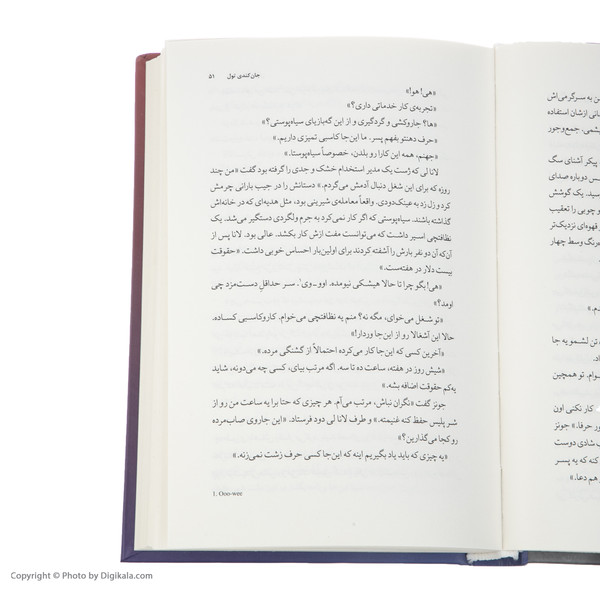 جان‌کندی تول ۵۱
«هی! هو!»
«تجربه‌ی کار خدماتی داری؟»
«ها؟ جاروکشی و گردگیری و از این گه‌بازیای سیاه‌پوستی؟»
«حرف دهنتو بفهم پسر. ما این‌جا کاسبی تمیزی داریم.»
«جهنم، همه این کارا رو بلدن، خصوصاً سیاه‌پوستا.»
لانا لی که ژست یک مدیر استخدام خشک و جدی را گرفته بود گفت «من چند
روزه که برای این شغل دنبال آدمش می‌گردم.» دستانش را در جیب بارانی چرمش
کرد و زل زد به عینک‌دودی. واقعاً معامله‌ی شیرینی بود، مثل هدیه‌ای که در خانه‌اش
گذاشته باشند. سیاه‌پوستی که اگر کار نمی‌کرد به جرم ولگردی دستگیر می‌شد. یک
نظافتچی اسیر داشت که می‌توانست مفت ازش کار بکشد. عالی بود. لانا پس از
آن‌که آن دو نفر بارش را آشفته کردند برای اولین‌بار احساس خوبی داشت. «حقوقت
بیست دلار در هفته‌ست.»
«هی! بگو چرا تا حالا هیشکی نیومده. اوو-وی¹. سر حداقل دست‌مزد چی
اومد؟»
«تو شغل می‌خوای، مگه نه؟ منم یه نظافتچی می‌خوام. کاروکاسبی کساده.
حالا این آشغالا رو از این‌جا وردار!»
«آخرین کسی که این‌جا کار می‌کرده احتمالاً از گشنگی مرده.»
«شیش روز در هفته، ساعت ده تا سه. اگه مرتب بیای، کسی چه می‌دونه، شاید
یه‌کم حقوقت اضافه بشه.»
جونز گفت «نگران نباش، مرتب می‌آم. هر چیزی که حتا برا یه ساعت من رو از
شر پلیس حفظ کنه غنیمته.» و طرف لانا لی دود فرستاد. «این جاروی صاب‌مرده
رو کجا می‌ذارین؟»
«یه چیزی که باید یاد بگیریم اینه که این‌جا کسی حرف زشت نمی‌زنه.»
1. Ooo-wee
ن به سرگرمی‌اش
انی ازشان استفاده
شمی. جمع‌وجور
پیکر آشنای سگ
س دوباره صدای
سید. یک گوشش
و چوبی را تعقیب
قهوه‌ای نزدیک‌تر
ه‌رنگ وسط چهار
دم.»
تن لشمو یه جا
وام. تو همچین
کار نکنی اون
ور حرفا.» جونز
شادی دوست
کنه که یه پسر
هم دعا.»
Copyright © Photo by Digikala.com